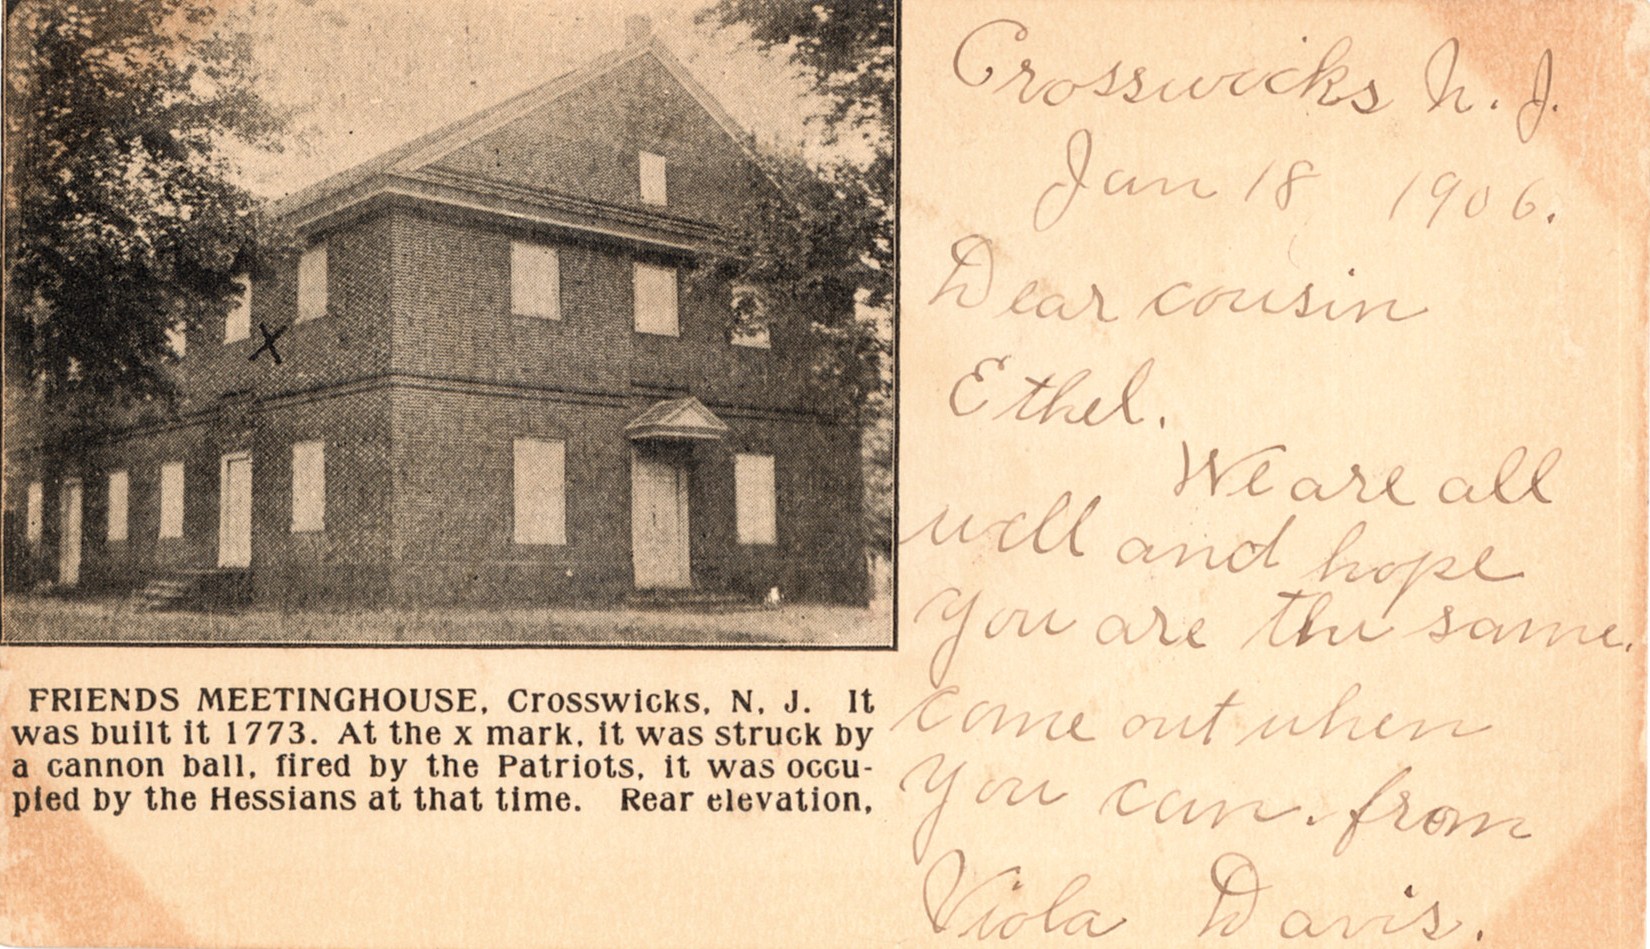 FRIENDS MEETINGHOUSE, Crosswicks, N. J. It
was built it 1773. At the x mark, it was struck by
a cannon ball, fired by the Patriots, it was occu-
pied by the Hessians at that time. Rear elevation,
Crosswicks N. J.
Jan 18 1906.
Dear cousin
Ethel.
We are all
well and hope
you are the same.
come out when
you can. from
Viola Davis.